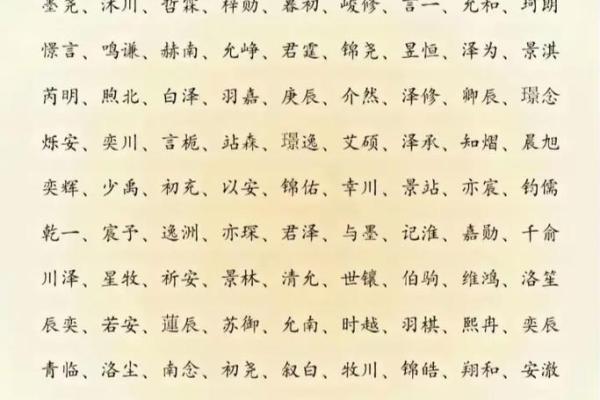 墨尧、沐川、哲霖、梓勋、暮初、峻修、言一、允和、珂朗
憬言、鸣谦、赫南、允峥、君霆、锦尧、昱恒、泽为、景淇
芮明、煦北、白泽、羽嘉、庚辰、介然、泽修、卿辰、璟念
烁安、奕川、言栀、站森、璟逸、艾硕、泽承、知熠、晨旭
奕辉、少禹、初充、以安、锦佑、幸川、景站、亦宸、钧儒
乾一、宸予、逸洲、亦琛、君泽、与墨、记淮、嘉勋、千俞
川泽、星牧、祈安、景林、清允、世镶、伯驹、维鸿、洛笙
辰奕、若安、蓮辰、苏御、允南、时越、羽棋、熙冉、奕辰
青临、洛尘、南念、初尧、叙白、牧川、锦皓、翔和、安澈